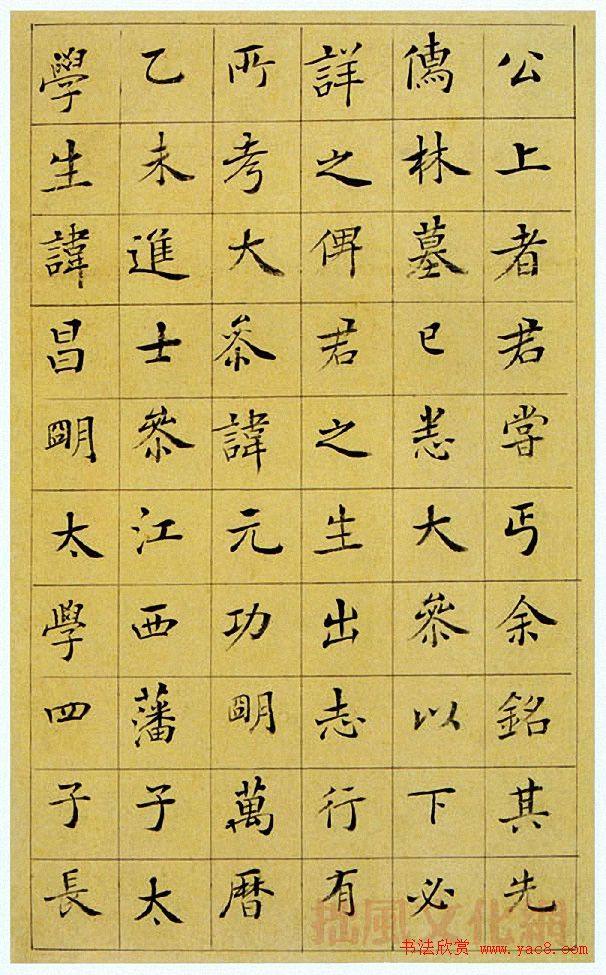 公上者君嘗丐余銘其先
林墓已悉大叅以下必
詳之俾君之生出志行有
所考大叅諱元功朙萬曆
乙未進士叅江西藩子太
學生諱昌朙太學四子長
拙風文化網
书法欣赏 www.yac8.com